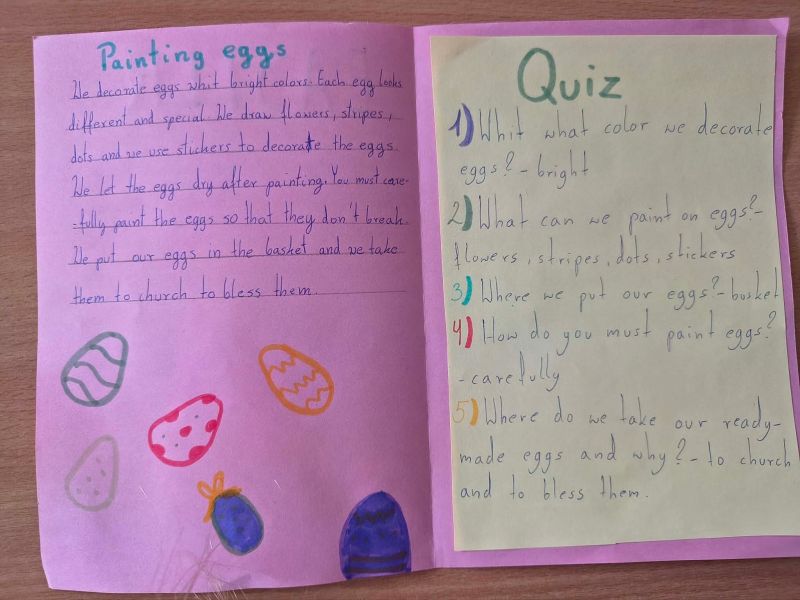 Painting eggs
We decorate eggs whit bright colors. Each egg looks
different and special. We draw flowers, stripes,
dots and we use stickers to decorate the eggs.
We let the eggs dry after painting. You must care-
-fully paint the eggs so that they don't break.
We put our eggs in the basket and we take
them to church to bless them.
Quiz
1) Whit what color we decorate
eggs? - bright
2) What can we paint on eggs? -
flowers, stripes, dots, stickers
3) Where we put our eggs? - busket
4) How do you must paint eggs?
- carefully
5) Where do we take our ready-
made eggs and why? - to church
and to bless them.